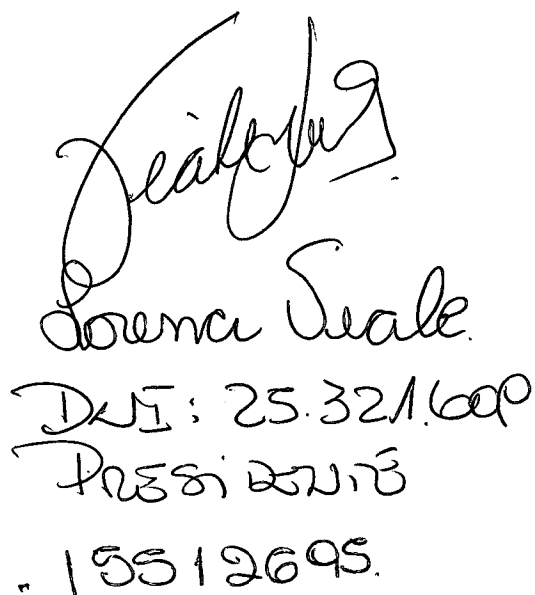 Lorena Seale.
DNI: 25.321.600
PRESIDENTE
15512695.